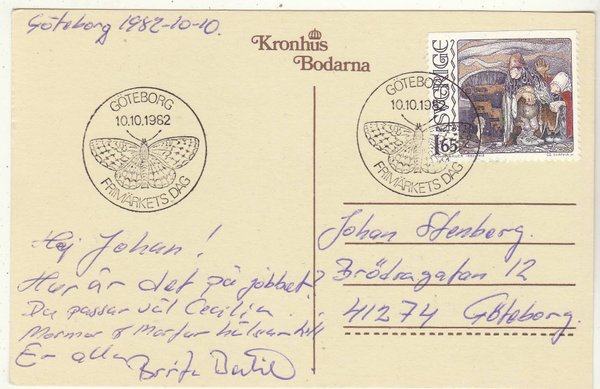 Göteborg 1982-10-10.
Kronhus
Bodarna
GÖTEBORG
10.10.1982
FRIMÄRKETS DAG
GÖTEBORG
10.10.1982
FRIMÄRKETS DAG
SVERIGE
1.65
Hej Johan!
Hur är det på jobbet?
Du passar väl Cecilia..
Mormor & Morfar hälsar till
Er alla
Johan Stenberg.
Brödragatan 12
41274 Göteborg.